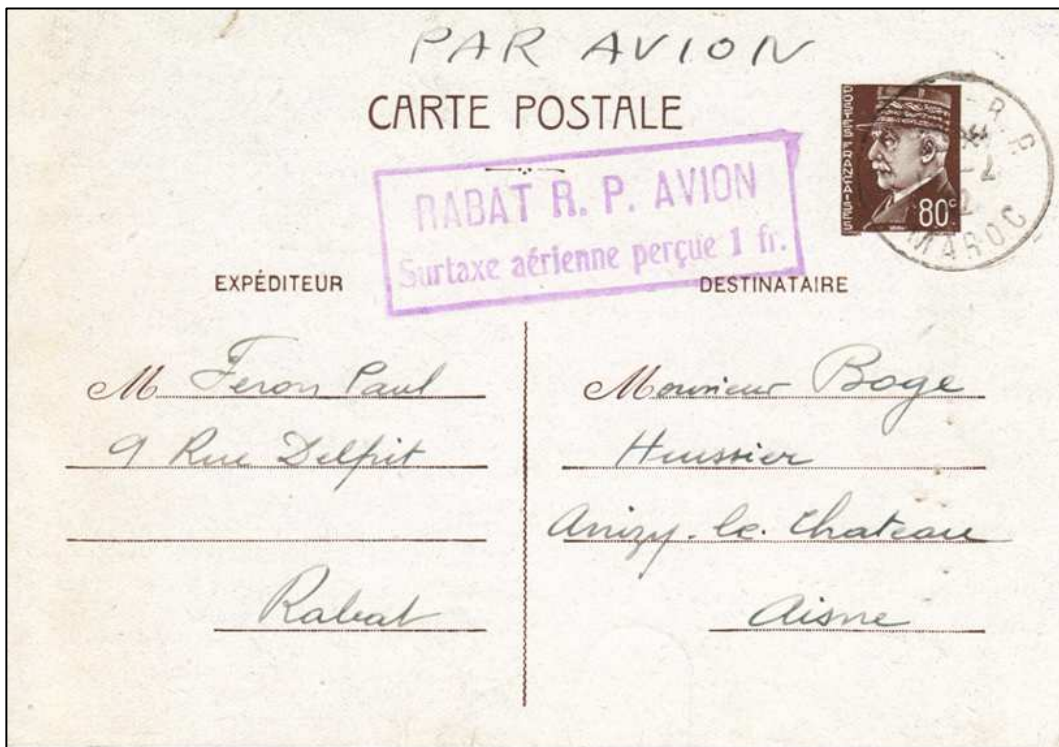 PAR AVION
CARTE POSTALE
POSTES FRANÇAISES
80c
R.P
MAROC
RABAT R. P. AVION
Surtaxe aérienne perçue 1 fr.
EXPÉDITEUR
M Feron Paul
9 Rue Delpit
Rabat
DESTINATAIRE
Monsieur Boge
Huissier
Anizy-le-Chateau
Aisne